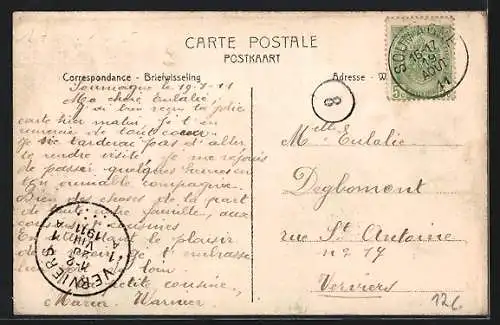 CARTE POSTALE
POSTKAART
Correspondance - Briefwisseling
Adresse - W
SOUMAGNE
16-17
AOUT
11
8
Soumagne le 19-8-11
Ma chère Eulalie,
J'ai bien reçu ta jolie
carte hier matin. Je t'en
remercie de tout coeur
Je ne tarderai pas d'aller
te rendre visite, je me rejouis
de passer quelques heures en
ton aimable compagnie.
Bien des choses de la part
de toute notre famille, aux
cousins et cousines
En attendant le plaisir
de te voir je t'embrasse
bien fort de loin
Ta petite cousine,
Maria Warnier
Melle Eulalie
Degbomont
rue St Antoine
n° 17
Verviers
VERVIERS
1911
126